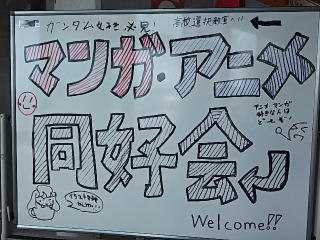 ガンダム好き必見! 高校選択教室へ!!
マンガ・アニメ
アニメ マンガ
好きな人は
ど〜ぞ
同好会
Welcome!!